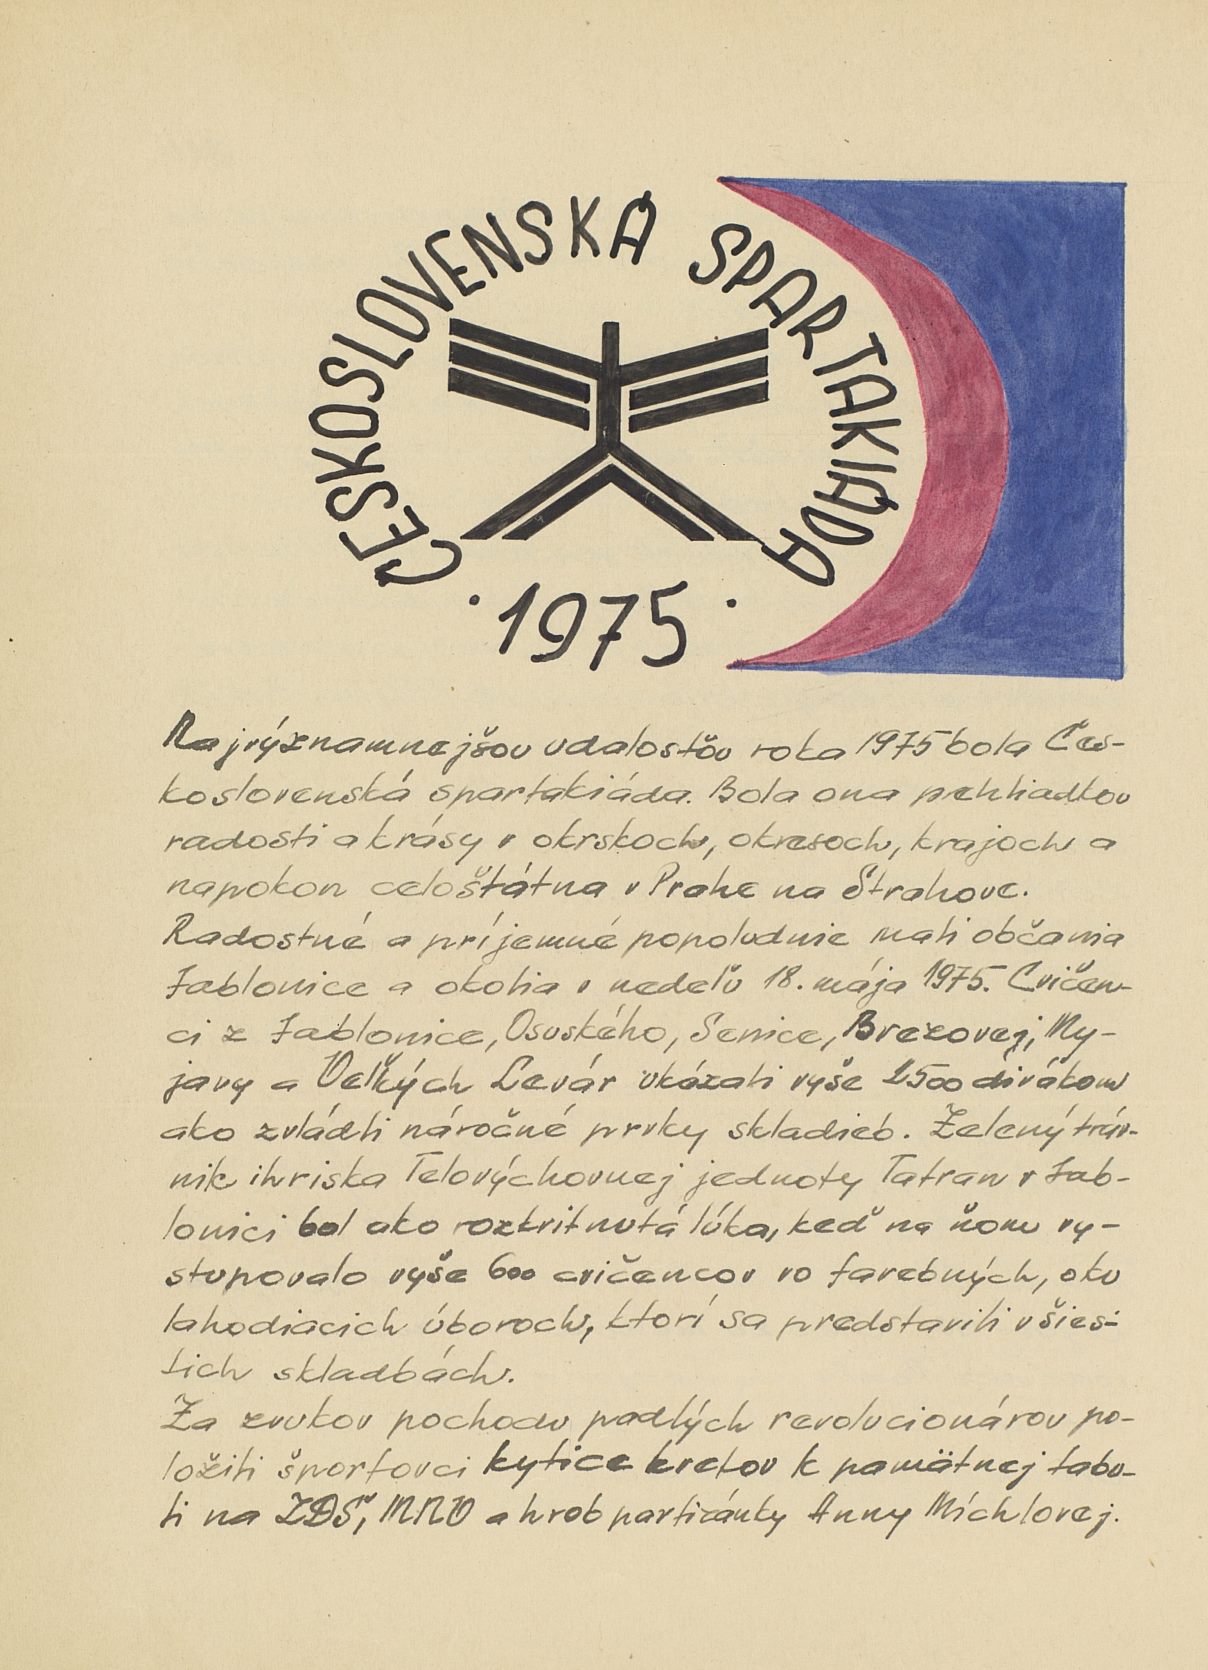 ČESKOSLOVENSKÁ SPARTAKIÁDA
· 1975 ·
Najvýznamnejšou udalosťou roka 1975 bola Čes-
koslovenská spartakiáda. Bola ona prehliadkou
radosti a krásy v okrskoch, okresoch, krajoch a
napokon celoštátna v Prahe na Strahove.
Radostné a príjemné popoludnie mali občania
Jablonice a okolia v nedeľu 18. mája 1975. Cvičen-
ci z Jablonice, Osuského, Senice, Brezovej, My-
javy a Veľkých Levár ukázali vyše 2500 divákom
ako zvládli náročné prvky skladieb. Zelený tráv-
nik ihriska Telovýchovnej jednoty Tatran v Jab-
lonici bol ako rozkvitnutá lúka, keď na ňom vy-
stupovalo vyše 600 cvičencov vo farebných, oku
lahodiacich úboroch, ktorí sa predstavili v šies-
tich skladbách.
Za zvukov pochodu padlých revolucionárov po-
ložili športovci kytice kvetov k pamätnej tabu-
li na ZDŠ, MNV a hrob partizánky Anny Míchlovej.